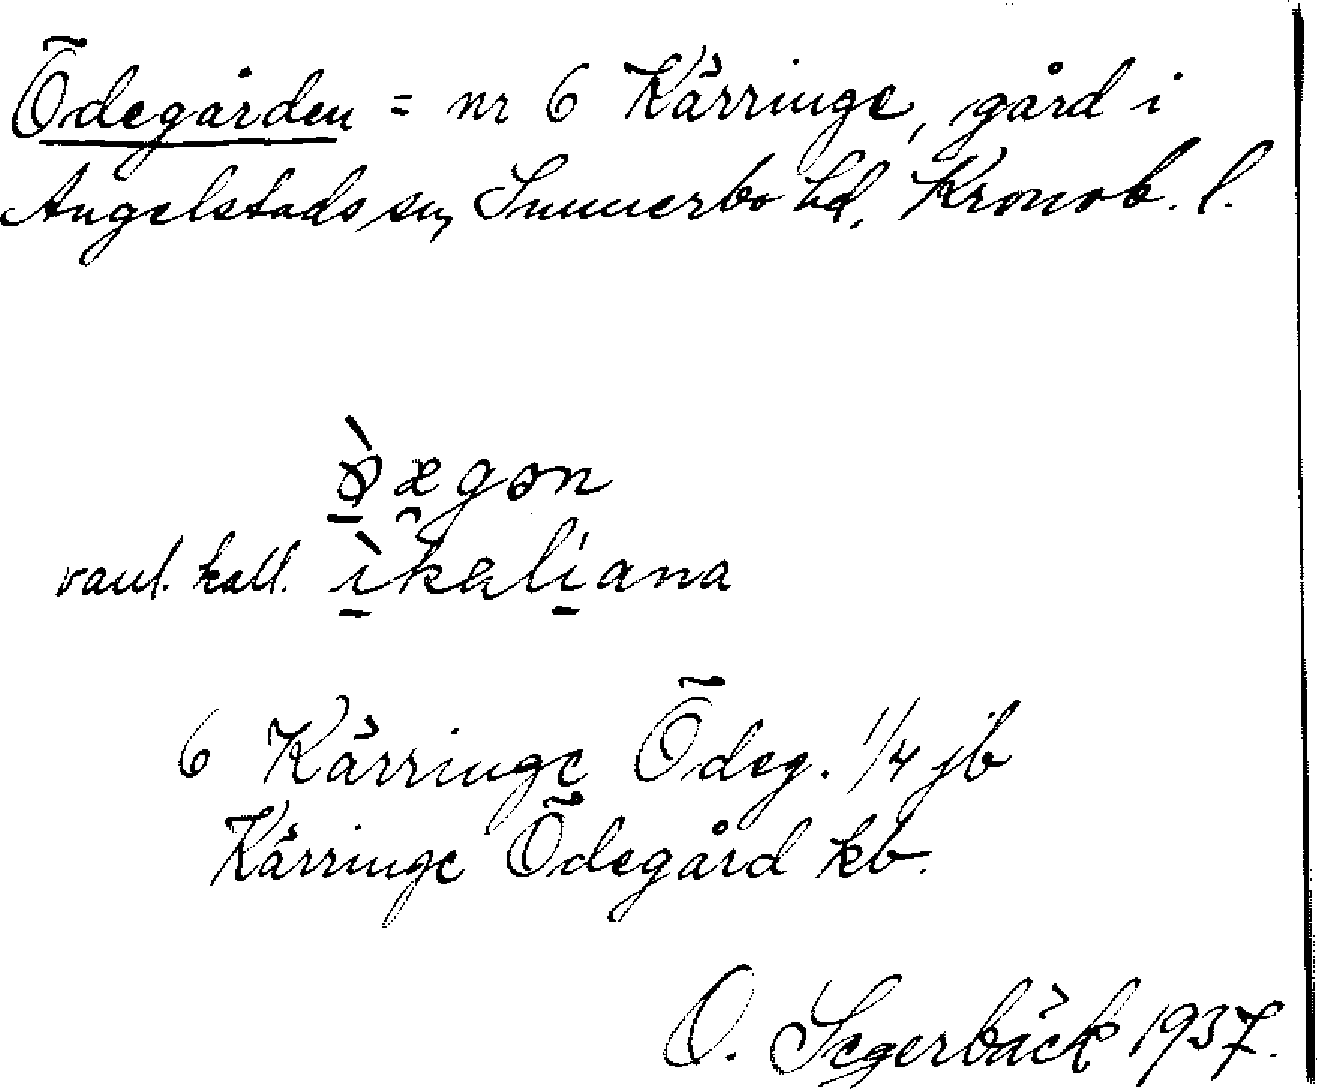 Ödegården = nr 6 Kärringe, gård i
Angelstads sn, Sunnerbo hd, Kronob. l.
vanl. kall.
6 Kärringe Ödeg. 1/4 jb
Kärringe Ödegård kb.
O. Segerbäck 1937.